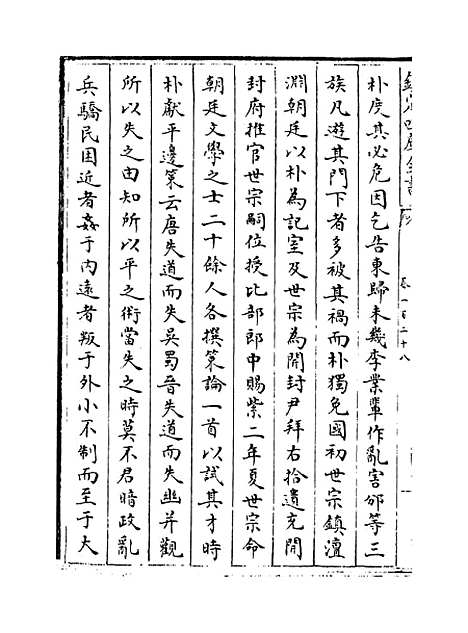 欽定四庫全書
卷一百二十八
朴度其必危因乞告東歸未幾李業輩作亂害邠等三
族凡遊其門下者多被其禍而朴獨免國初世宗鎮澶
淵朝廷以朴為記室及世宗為開封尹拜右拾遺充開
封府推官世宗嗣位授比部郎中賜紫二年夏世宗命
朝廷文學之士二十餘人各撰策論一首以試其才時
朴獻平邊策云唐失道而失吳蜀晉失道而失幽并觀
所以失之由知所以平之術當失之時莫不君暗政亂
兵驕民困近者姦于內遠者叛于外小不制而至于大